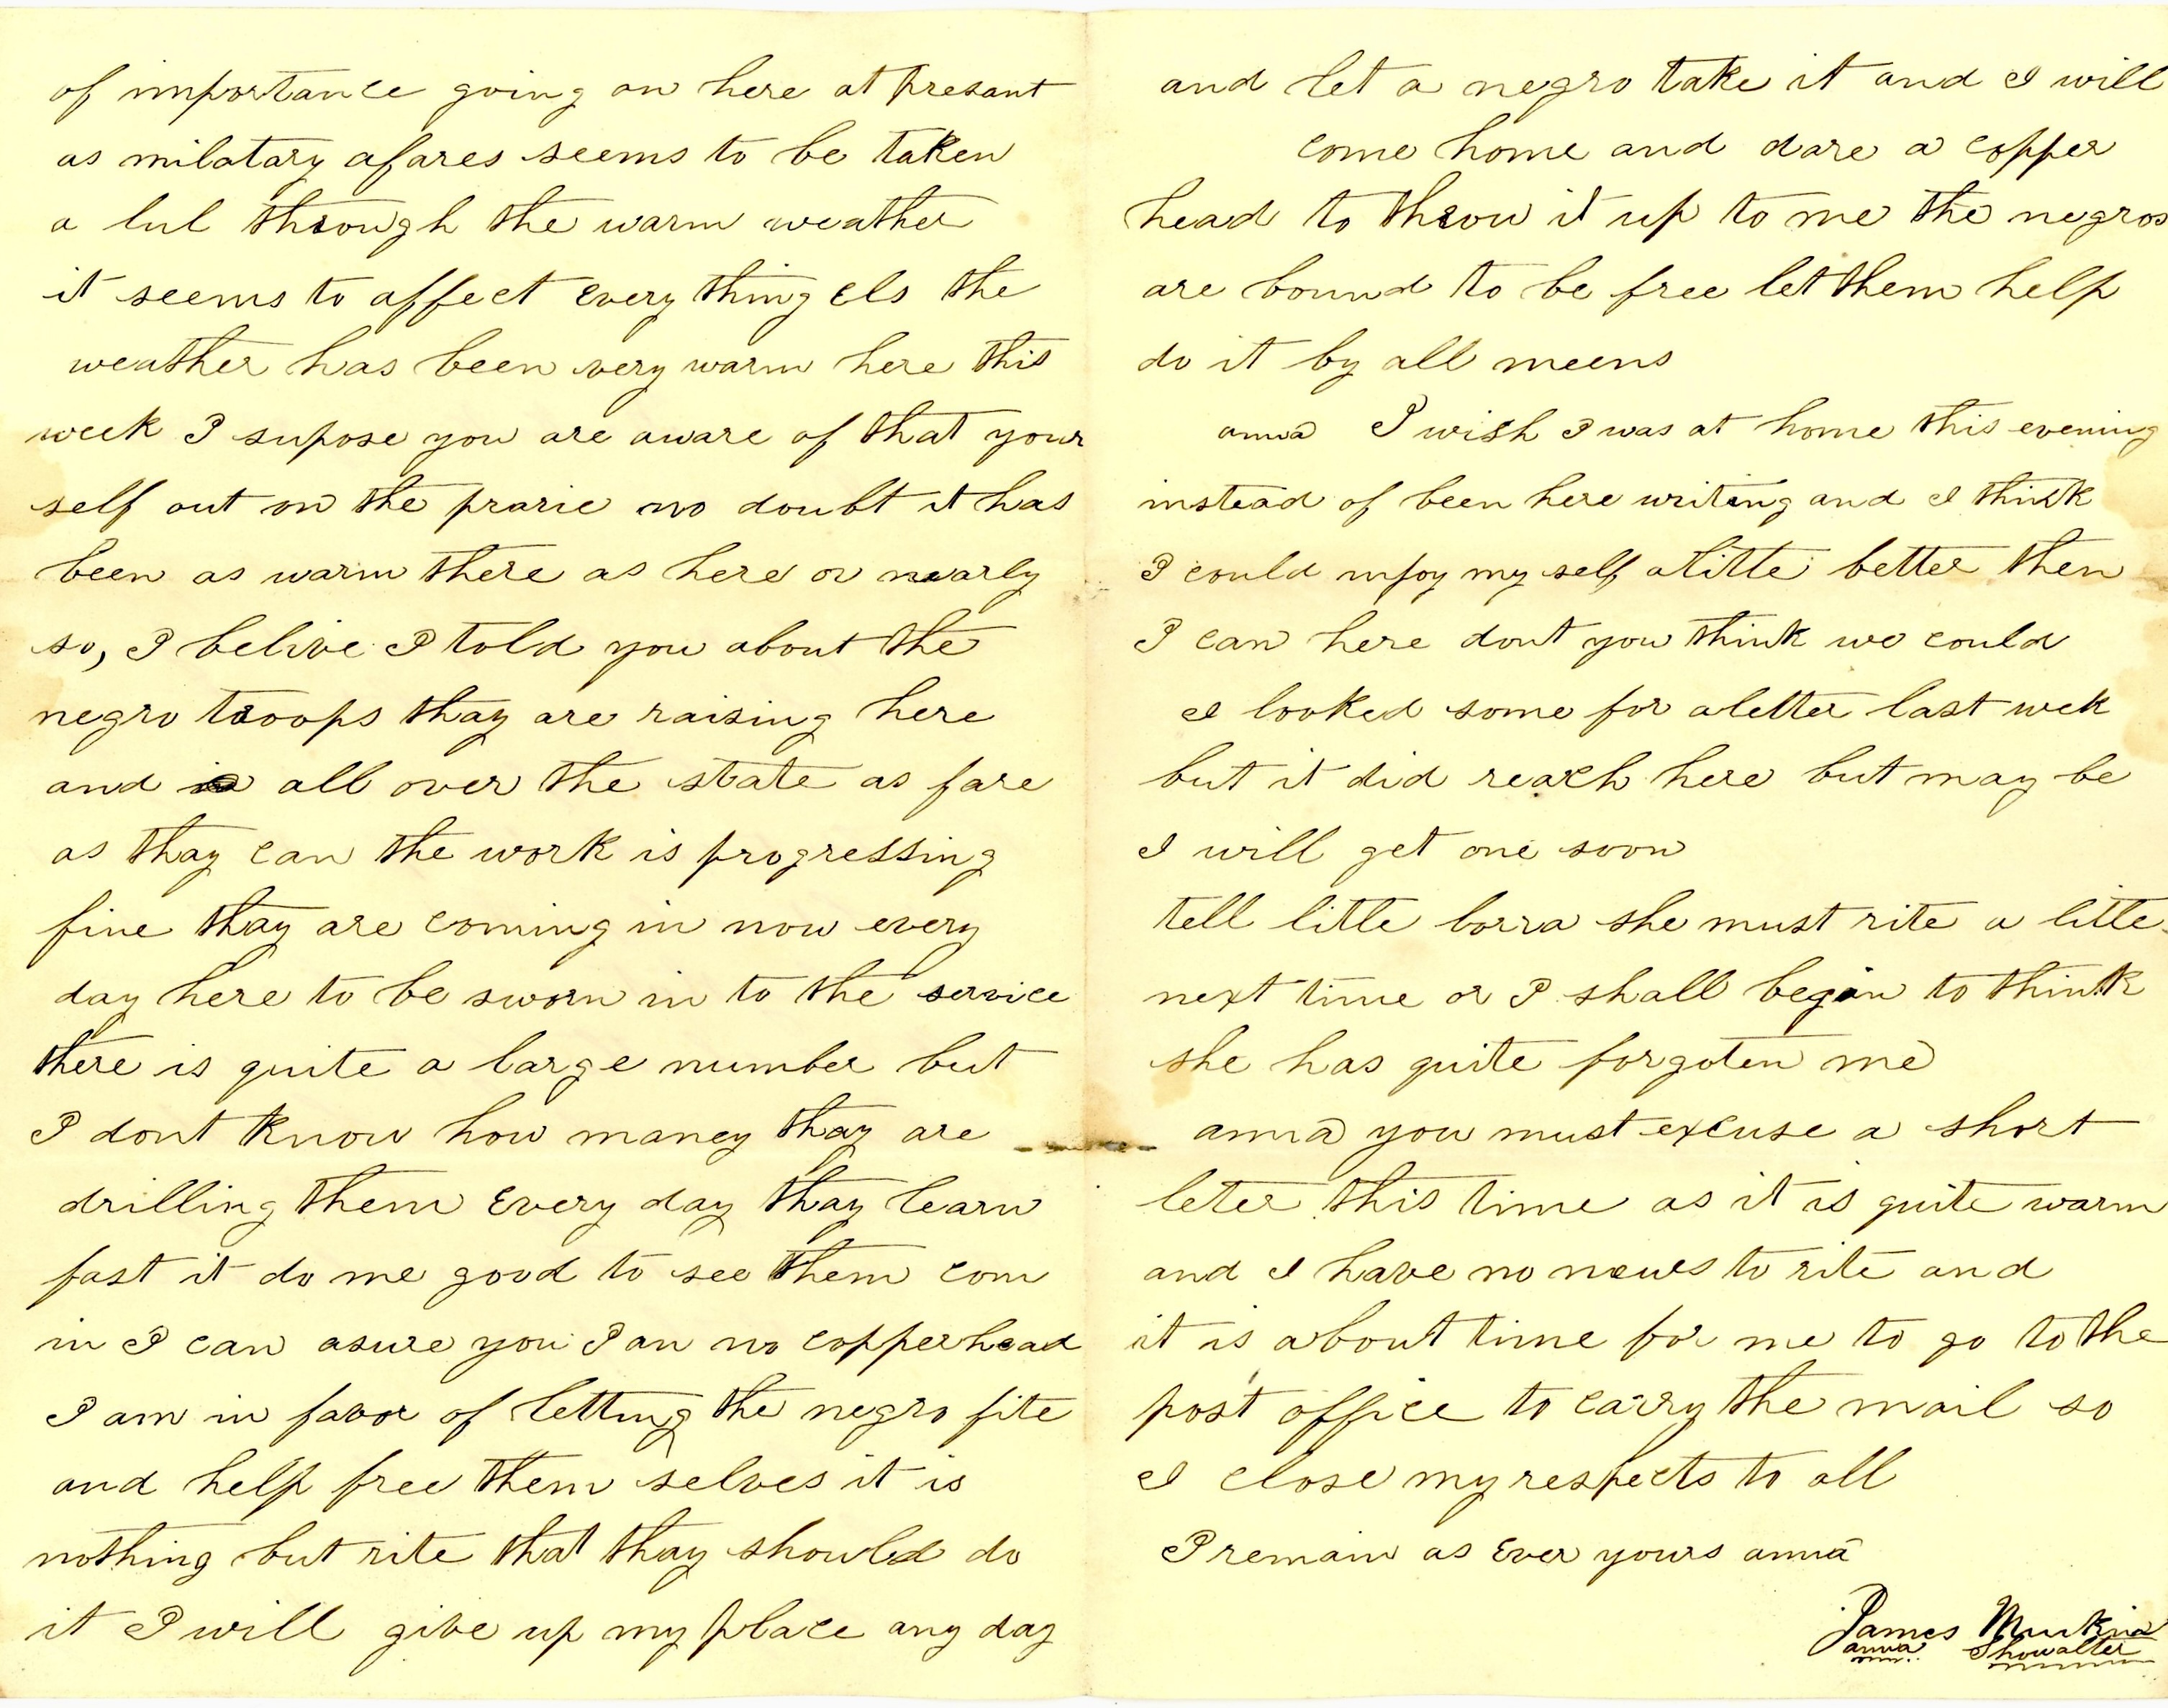 of importance going on here at presant
as milatary afares seems to be taken
a lul through the warm weather
it seems to affect every thing els the
weather has been very warm here this
week I supose you are aware of that your
self out on the prarie no doubt it has
been as warm there as here or nearly
so, I belive I told you about the
negro troops thay are raising here
and all over the state as fare
as thay can the work is progressing
fine thay are coming in now every
day here to be sworn in to the service
there is quite a large number but
I dont know how maney thay are
drilling them every day thay learn
fast it do me good to see them com
in I can asure you I an no copperhead
I am in favor of letting the negro fite
and help free them selves it is
nothing but rite that thay should do
it I will give up my place any day
and let a negro take it and I will
come home and dare a copper
head to throw it up to me the negros
are bound to be free let them help
do it by all meens
anna I wish I was at home this evening
instead of been here writing and I think
I could injoy my self a litte better then
I can here dont you think we could
I looked some for a letter last wek
but it did reach here but may be
I will get one soon
tell litte she must rite a litte
next time or I shall begin to think
she has quite forgoten me
anna you must excuse a short
leter this time as it is quite warm
and I have no news to rite and
it is about time for me to go to the
post office to carry the mail so
I close my respects to all
I remain as ever yours anna
James
anna Showalter